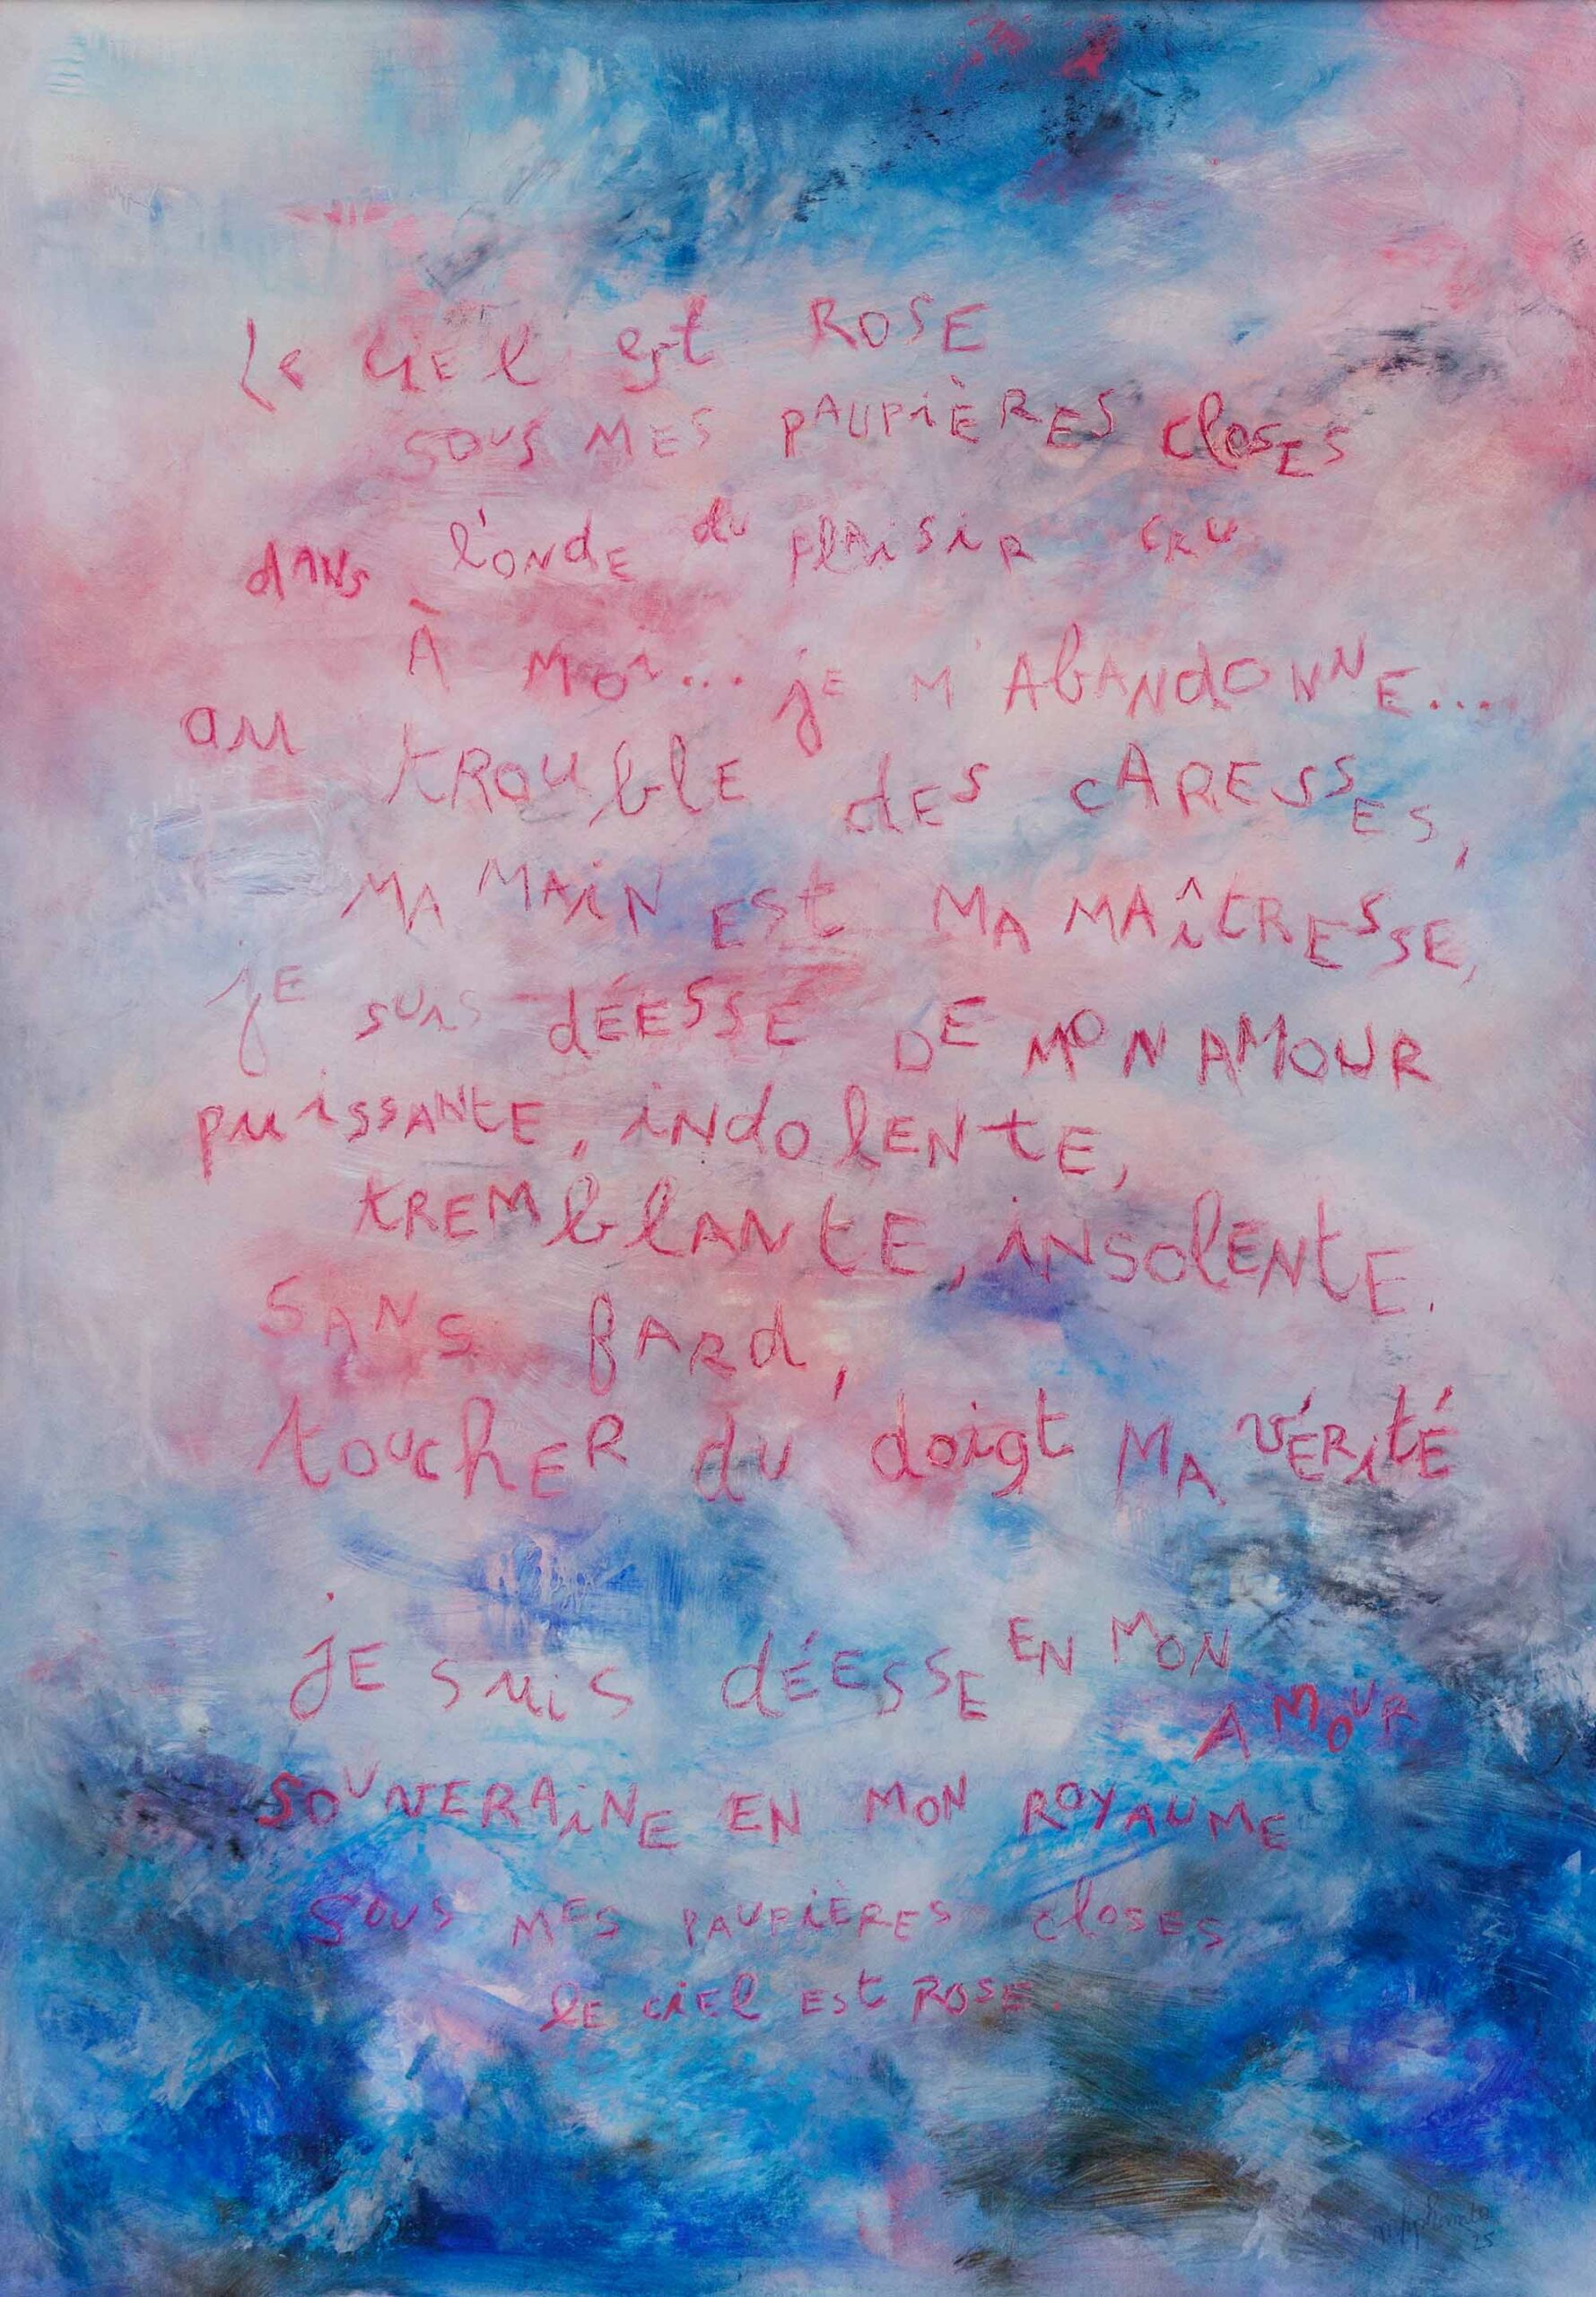 Le CIEL est ROSE
SOUS MES PAUPIÈRES CLOSES
dANS l'ONdE du PlAISIR CRU
À MOI... jE M'AbANdONNE...
au tROUblE dES CARESSES,
MA MAIN ESt MA MAÎtRESSE,
jE SUIS dÉESSE DE MON AMOUR
puissANtE, iNdOlENtE,
tREMblANtE, iNSOlENtE.
SANS fARd,
toucHER du doigt MA VÉRItÉ
jE suis dÉESSE EN MON
AMOUR
SOUVERAiNE EN MON ROYAUME
SOUS MES PAUPIÈRES closES
lE ciEl ESt ROSE.
25